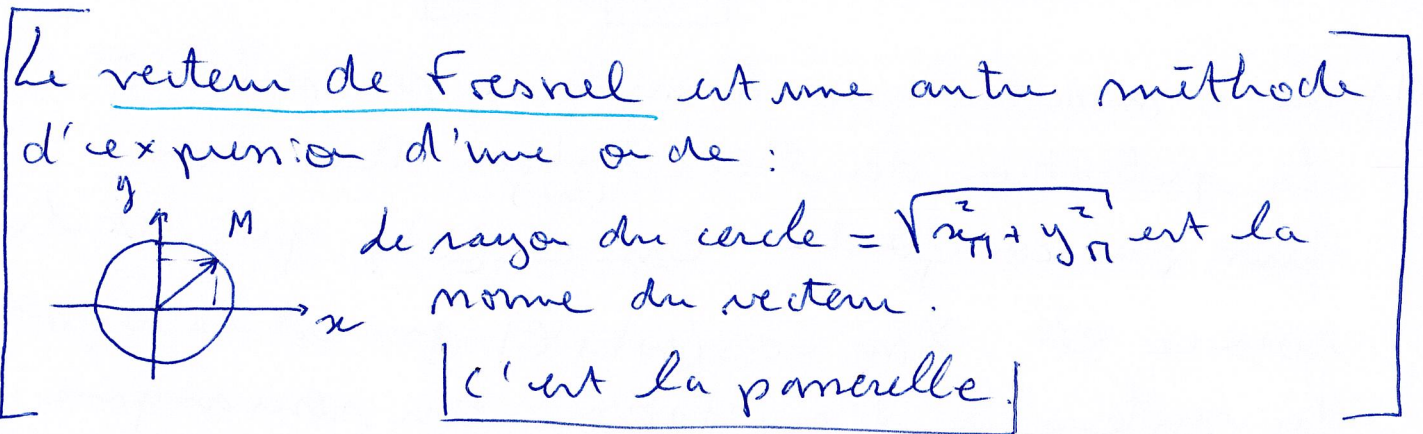 Le vecteur de Fresnel est une autre méthode
d'expression d'une onde :
y
M
Le rayon du cercle = √(x²_M + y²_M) est la
norme du vecteur.
x
c'est la passerelle.